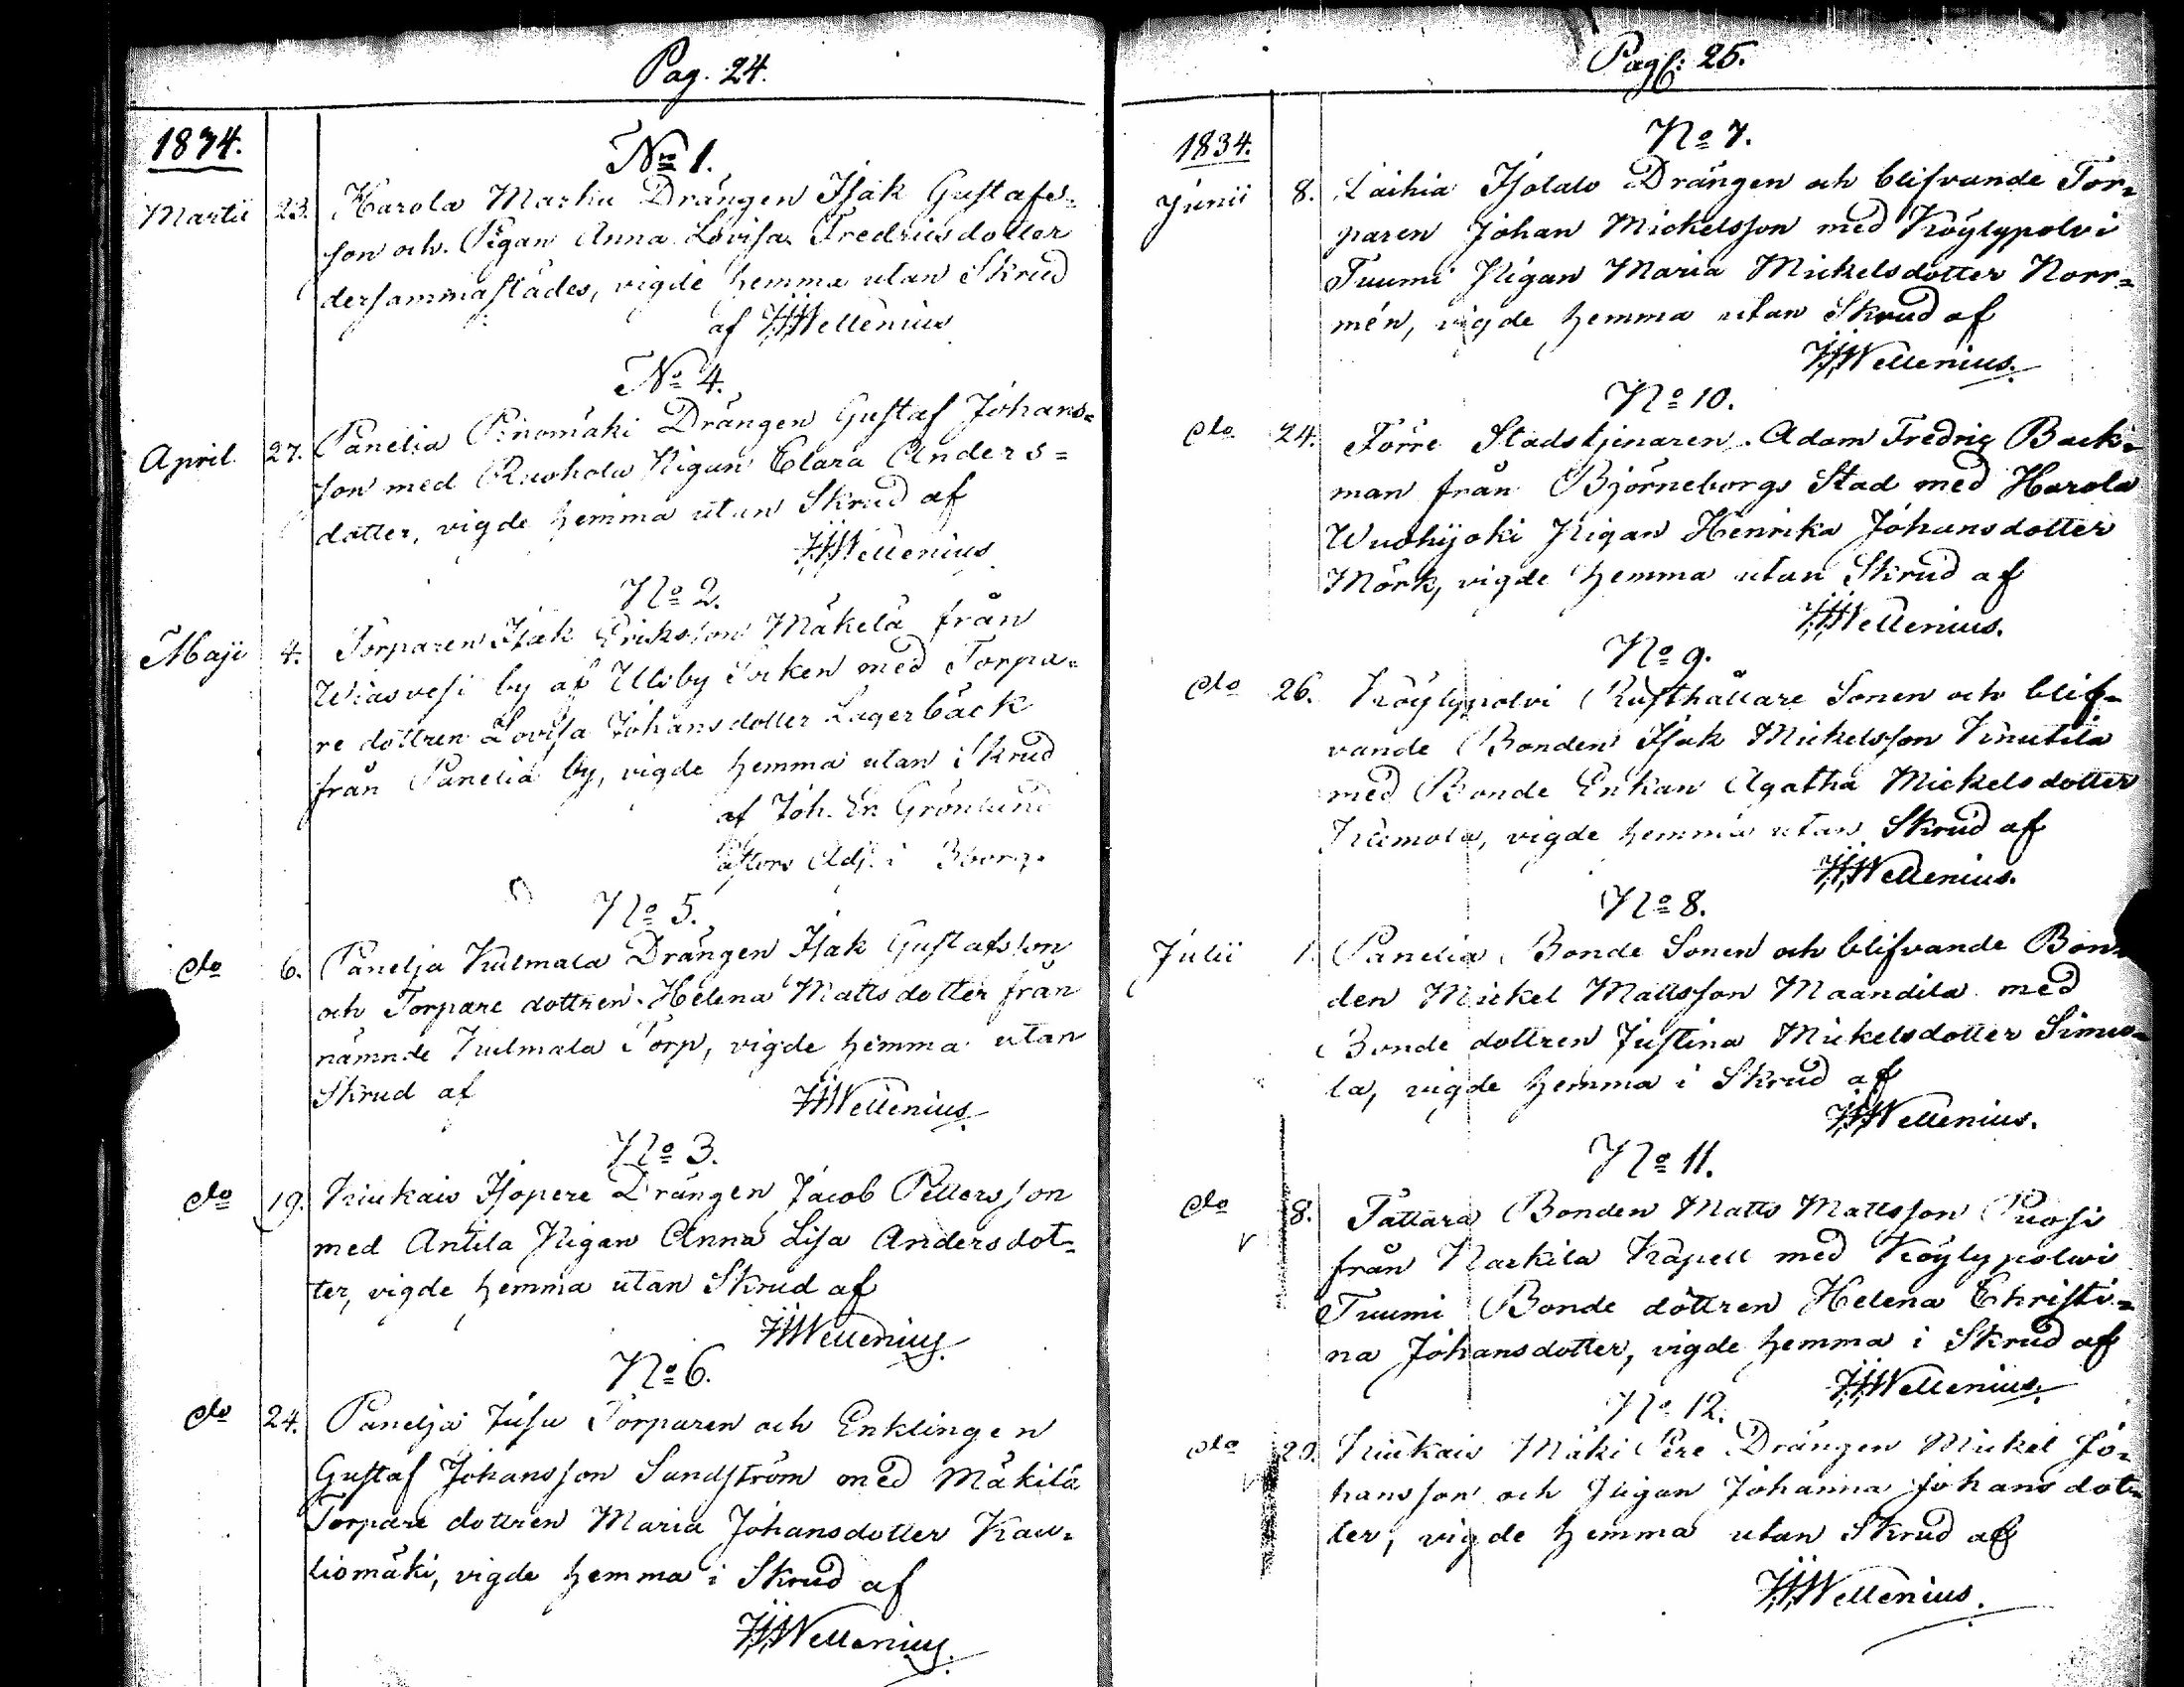 Pag. 24.
1834.
No 1.
Martii 23. Harola Marku Drängen Isak Gustafs=
son och Pigan Anna Lovisa Fredricsdotter
dersammastädes, vigde hemma utan Skrud
af Wellenius
No 4.
April 27. Panelia Pinomäki Drängen Gustaf Johans=
son med Ruohola Pigan Clara Anders=
dotter, vigde hemma utan Skrud af
Wellenius
No 2.
Maji 4. Torparen Isak Eriksson Mäkelä från
Wiasvesi by af Ulfsby Soken med Torpa=
re dottren Lovisa Johansdotter Lagerbäck
från Panelia by, vigde hemma utan Skrud
af Joh. En Grönlund
Adj. i Bborg.
No 5.
do 6. Panelja Kulmala Drängen Isak Gustafsson
och Torpare dottren Helena Mattsdotter från
nämnde Kulmala Torp, vigde hemma utan
Skrud af Wellenius
No 3.
do 19. Kiukais Isopere Drängen Jacob Pettersson
med Antila Pigan Anna Lisa Andersdot=
ter, vigde hemma utan Skrud af
Wellenius
No 6.
do 24. Panelja Jusu Torparen och Enklingen
Gustaf Johansson Sundström med Mäkilä
Torpare dottren Maria Johansdotter Kau=
liomäki, vigde hemma i Skrud af
Wellenius
Pag: 25.
1834.
No 7.
Junii 8. Laihia Isotalo Drängen och blifvande Tor=
paren Johan Mickelsson med Köylypolvi
Tuumi Pigan Maria Mickelsdotter Norr=
mén, vigde hemma utan Skrud af
Wellenius.
No 10.
do 24. Förre Stadstjenaren Adam Fredric Back=
man från Björneborgs Stad med Harola
Wuohijoki Pigan Henrika Johansdotter
Mörk, vigde hemma utan Skrud af
Wellenius.
No 9.
do 26. Köylypolvi Rusthållare Sonen och blif=
vande Bonden Isak Mickelsson Knutila
med Bonde Enkan Agatha Mickelsdotter
vigde hemma utan Skrud af
Wellenius.
No 8.
Julii 1. Panelia Bonde Sonen och blifvande Bon=
den Mickel Mattsson Maandila med
Bonde dottren Justina Mickelsdotter Simo=
la, vigde hemma i Skrud af
Wellenius.
No 11.
do 8. Tattara Bonden Matts Mattsson Puosi
från Nackila Kapell med Köylypolvi
Tuumi Bonde dottren Helena Christi=
na Johansdotter, vigde hemma i Skrud af
Wellenius.
No 12.
do 29. Kiukais Mäki Pere Drängen Mickel Jo=
hansson och Pigan Johanna Johansdot=
ter, vigde hemma utan Skrud af
Wellenius.